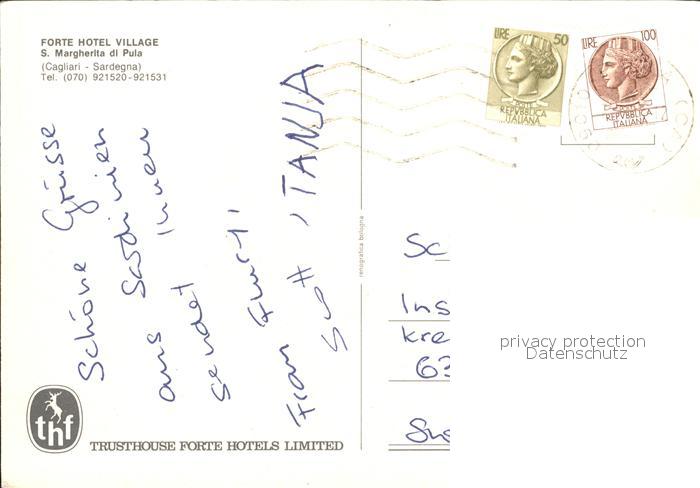 FORTE HOTEL VILLAGE
S. Margherita di Pula
(Cagliari - Sardegna)
Tel. (070) 921520-921531
LIRE 50
REPVBBLICA
ITALIANA
LIRE 100
REPVBBLICA
ITALIANA
Schöne Grüsse
aus Sardinien
sendet Ihnen
Fran
TANJA
renografica bologna
Sc
Ins
kre
63
privacy protection
Datenschutz
thf
TRUSTHOUSE FORTE HOTELS LIMITED